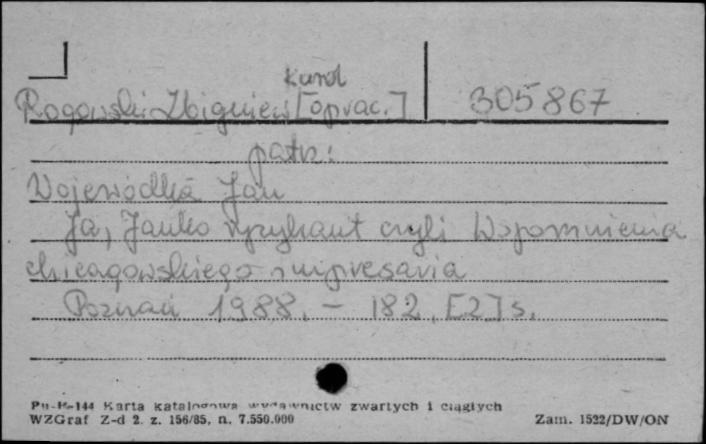 Karol
Rogowski Zbigniew [oprac.] 305867
patrz:
Wojewódka Jan
Ja, Janko czyli Wspomnienia
chicagowskiego impresaria
Poznań 1988. – 182, [2] s.
Pu-K-144 Karta katalogowa wydawnictw zwartych i ciągłych
WZGraf Z-d 2. z. 156/85, n. 7.550.000 Zam. 1522/DW/ON